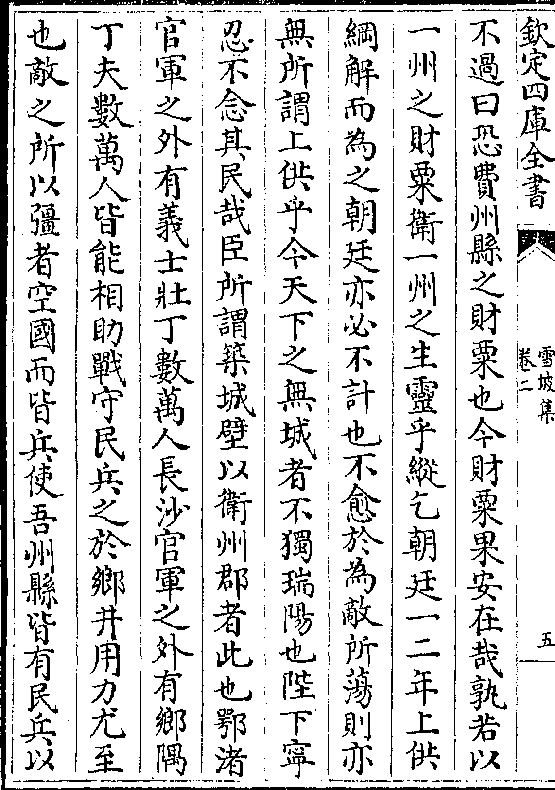 欽定四庫全書
雪坡集
卷二
五
不過曰恐費州縣之財粟也今財粟果安在哉孰若以
一州之財粟衛一州之生靈乎縱乞朝廷一二年上供
綱解而為之朝廷亦必不計也不愈於為敵所蕩則亦
無所謂上供乎今天下之無城者不獨瑞陽也陛下寧
忍不念其民哉臣所謂築城壁以衛州郡者此也鄂渚
官軍之外有義士壯丁數萬人長沙官軍之外有鄉隅
丁夫數萬人皆能相助戰守民兵之於鄉井用力尤至
也敵之所以彊者空國而皆兵使吾州縣皆有民兵以